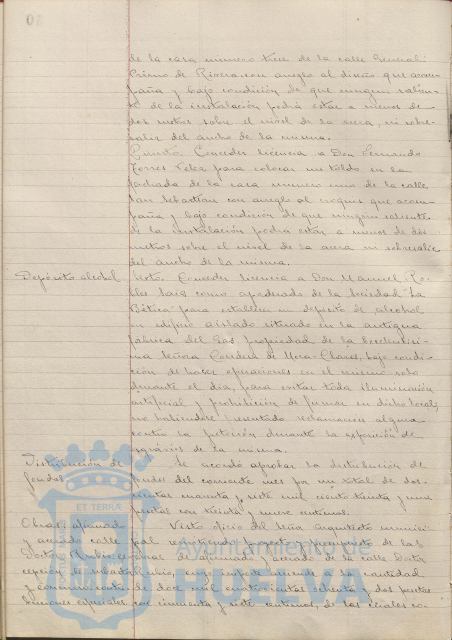 de la casa numero trece de la calle General
Primo de Rivera, con arreglo al diseño que acom-
paña y bajo condición de que ningun salien-
te de la instalación podrá estar a menos de
dos metros sobre el nivel de la acera, ni sobre-
salir del ancho de la misma.
Quinto. Conceder licencia a Don Fernando
Torres Velez para colocar un toldo en la
fachada de la casa numero uno de la calle
San Sebastian con arreglo al croquis que acom-
paña y bajo condición de que ningún saliente
de la instalación podrá estar a menos de dos
metros sobre el nivel de la acera ni sobresalir
del ancho de la misma.
Depósito alcohol
Sexto. Conceder licencia a Don Manuel Ro-
bles como apoderado de la Sociedad "La
Bética" para establecer un deposito de alcohol
en edificio aislado situado en la antigua
fabrica del Gas propiedad de la
Señora Condesa de Mora-Claros, bajo condi-
ción de hacer operaciones en el mismo solo
durante el dia, para evitar toda iluminación
artificial y prohibición de fumar en dicho local;
no habiendose presentado reclamación alguna
contra la petición durante la exposición de
de la misma.
Distribución de
fondos
Se acordó aprobar la distribución de
fondos del corriente mes por un total de dos-
cientas noventa y siete mil ciento treinta y una
pesetas con treinta y nueve centimos.
Obras afirmado
y acerado calle
Doctor Rubio
cepción de subasta
y concurso
Visto oficio del Señor Arquitecto munici-
pal remitiendo proyecto y presupuesto de las
obras de afirmado y acerado de la calle Doctor
Rubio, cuyo importe asciende a la cantidad
de doce mil cuatrocientas ochenta y dos pesetas
con cincuenta y siete centimos, de las cuales co-
ET TERRÆ
Ayuntamiento de
HUELVA